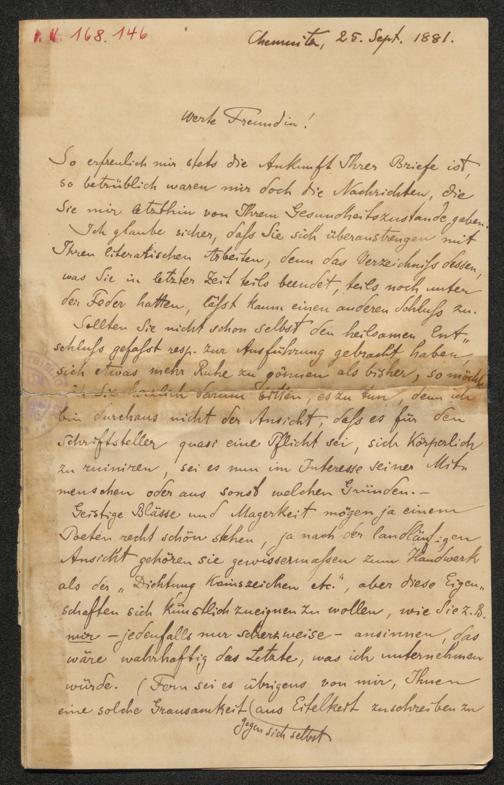 I. N. 168.146
Chemnitz, 25. Sept. 1881.
Werte Freundin!
So erfreulich mir stets die Ankunft Ihrer Briefe ist,
so betrüblich waren mir doch die Nachrichten, die
Sie mir letzthin von Ihrem Gesundheitszustande geben.
Ich glaube sicher, daſs Sie sich überanstrengen mit
Ihren literarischen Arbeiten, denn das Verzeichniſs dessen,
was Sie in letzter Zeit teils beendet, teils noch unter
der Feder hatten, läſst kaum einen anderen Schluſs zu.
Sollten Sie nicht schon selbst den heilsamen Ent„
schluſs gefaſst resp. zur Ausführung gebracht haben,
sich etwas mehr Ruhe zu gönnen als bisher, so möchte
ich Sie darum bitten, es zu tun, denn ich
bin durchaus nicht der Ansicht, daſs es für den
Schriftsteller quasi eine Pflicht sei, sich Körperlich
zu ruiniren, sei es nun im Interesse seiner Mit„
menschen oder aus sonst welchen Gründen. –
Geistige Blässe und Magerkeit mögen ja einem
Poeten recht schön stehen, ja nach der landläufigen
Ansicht gehören sie gewissermaſsen zum Handwerk
als der „Dichtung Kainszeichen etc.", aber diese Eigen„
schaften sich künstlich zueignen zu wollen, wie Sie z. B.
mir – jedenfalls nur scherzweise – ansinnen, das
wäre wahrhaftig das Letzte, was ich unternehmen
würde. (Fern sei es übrigens von mir, Ihnen
eine solche Grausamkeit (aus Eitelkeit zuschreiben zu
gegen sich selbst